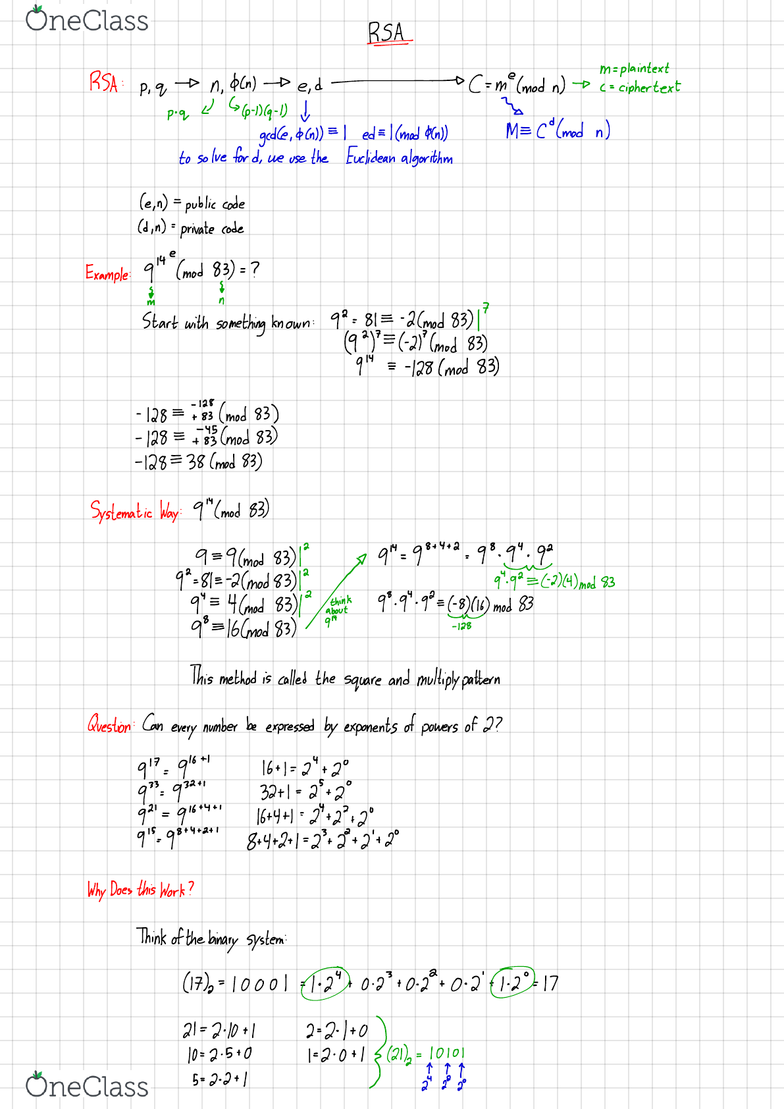 OneClass
RSA
RSA: p, q → n, ϕ(n) → e, d → C = mᵉ (mod n) → m = plaintext
c = ciphertext
p·q (p-1)(q-1)
gcd(e, ϕ(n)) ≡ 1 ed ≡ 1 (mod ϕ(n)) M ≡ Cᵈ (mod n)
to solve for d, we use the Euclidean algorithm
(e,n) = public code
(d,n) = private code
Example: 9¹⁴ ᵉ (mod 83) = ?
m n
Start with something known: 9² = 81 ≡ -2 (mod 83) |⁷
(9²)⁷ ≡ (-2)⁷ (mod 83)
9¹⁴ ≡ -128 (mod 83)
-128 ≡ -128 + 83 (mod 83)
-128 ≡ -45 + 83 (mod 83)
-128 ≡ 38 (mod 83)
Systematic Way: 9¹⁴ (mod 83)
9 ≡ 9 (mod 83) |² 9¹⁴ = 9⁸⁺⁴⁺² = 9⁸ · 9⁴ · 9²
9² = 81 ≡ -2 (mod 83) |² 9⁴ · 9² ≡ (-2)(4) mod 83
9⁴ ≡ 4 (mod 83) |² think about 9¹⁴ 9⁸ · 9⁴ · 9² ≡ (-8)(16) mod 83
9⁸ ≡ 16 (mod 83) -128
This method is called the square and multiply pattern
Question: Can every number be expressed by exponents of powers of 2?
9¹⁷ = 9¹⁶⁺¹ 16+1 = 2⁴ + 2⁰
9³³ = 9³²⁺¹ 32+1 = 2⁵ + 2⁰
9²¹ = 9¹⁶⁺⁴⁺¹ 16+4+1 = 2⁴ + 2² + 2⁰
9¹⁵ = 9⁸⁺⁴⁺²⁺¹ 8+4+2+1 = 2³ + 2² + 2¹ + 2⁰
Why Does this Work?
Think of the binary system:
(17)₂ = 10001 = 1·2⁴ + 0·2³ + 0·2² + 0·2¹ + 1·2⁰ = 17
21 = 2·10 + 1 2 = 2·1 + 0
10 = 2·5 + 0 1 = 2·0 + 1 (21)₂ = 10101
5 = 2·2 + 1 2⁴ 2² 2⁰
OneClass